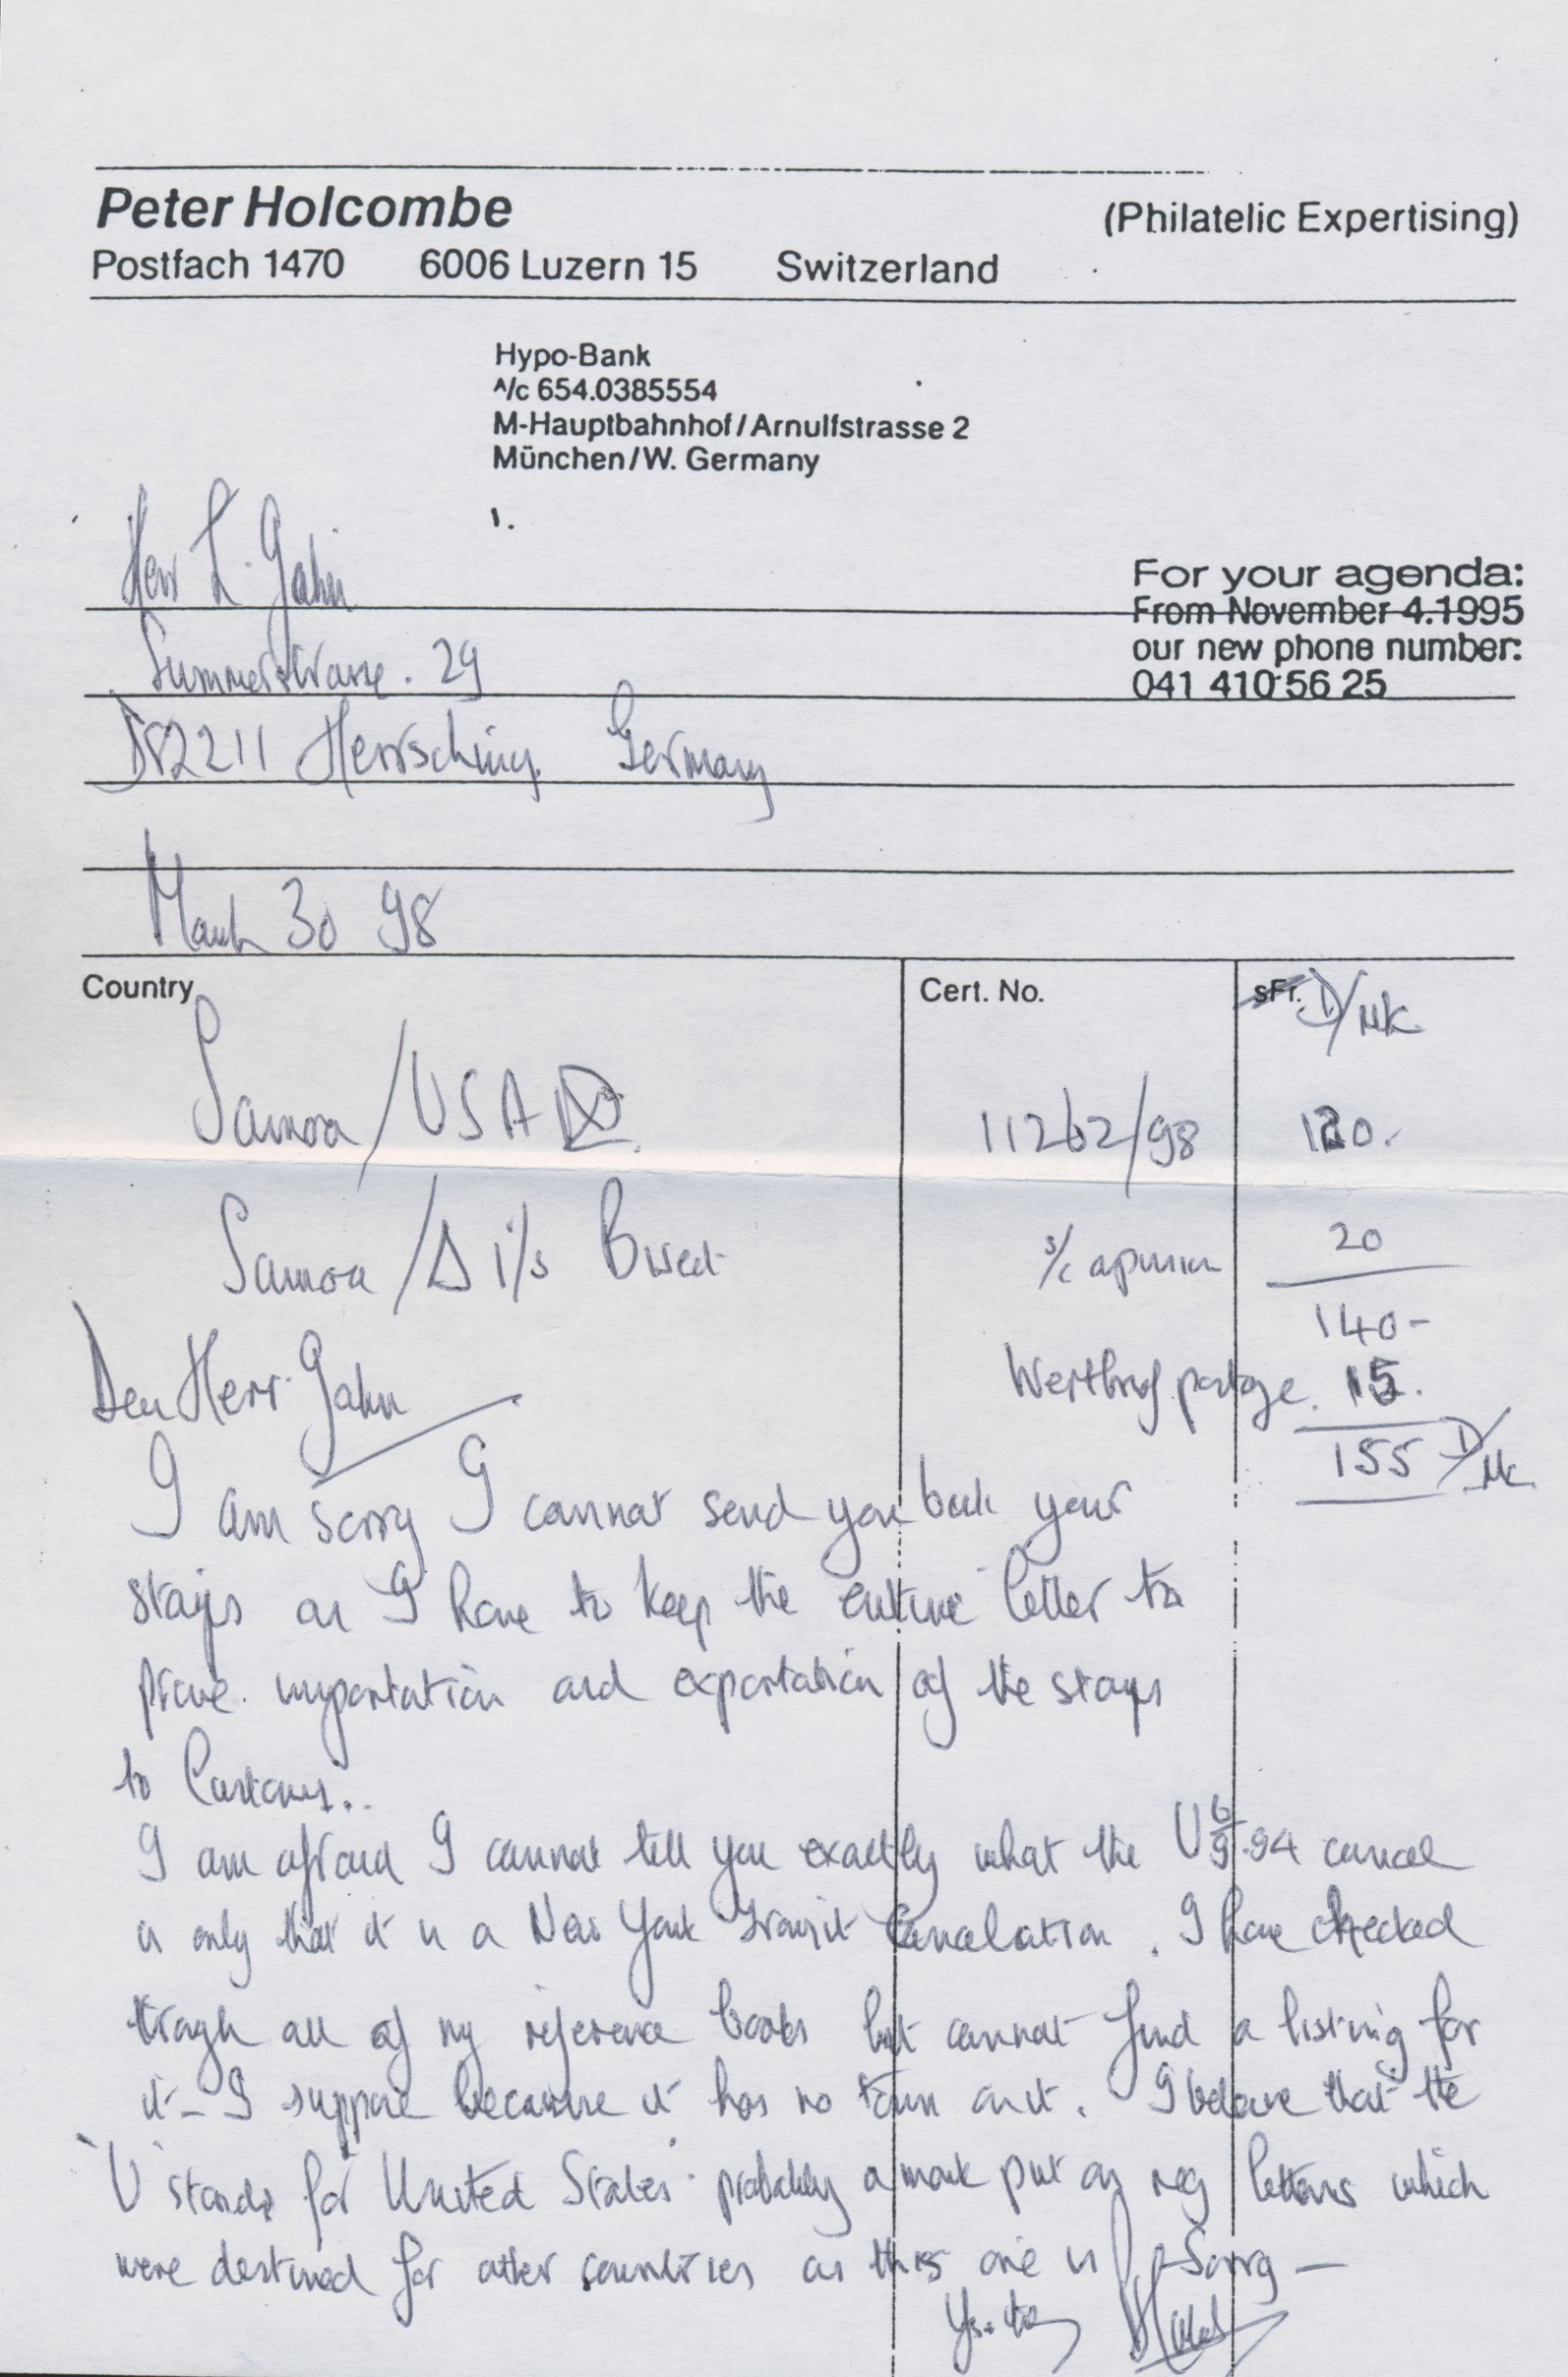 Peter Holcombe (Philatelic Expertising)
Postfach 1470 6006 Luzern 15 Switzerland
Hypo-Bank
A/c 654.0385554
M-Hauptbahnhof/Arnulfstrasse 2
München/W. Germany
Herr L. Gahn
For your agenda:
From November 4.1995
our new phone number:
041 410 56 25
Summerstrasse. 29
D82211 Herrsching Germany
March 30 98
Country Cert. No. sFr. D/MK
Samoa/USA 11262/98 120.-
Samoa/ i/s Bisect 20
140-
Dear Herr Gahn postage. 15.
155 D/MK
I am sorry I cannot send you back your
stamps as I have to keep the entire letter to
prove importation and exportation of the stamps
to Customs..
I am afraid I cannot tell you exactly what the U 6/9.94 cancel
is only that it is a New York transit cancelation. I have checked
trough all of my reference books but cannot find a listing for
it - I suppose because it has no town on it. I believe that the
'U' stands for United States probably a mark put on reg letters which
were destined for other countries as this one is. Sorry -